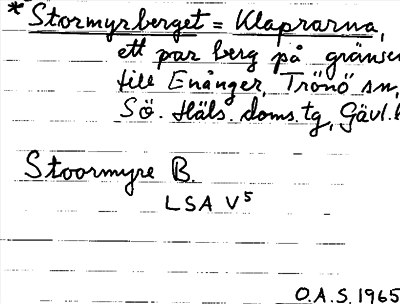 * Stormyrberget = Klaprarna,
ett par berg på gränsen
till Enånger, Trönö sn,
Sö. Häls. doms. tg, Gävl.
Stoormyre B.
LSA V⁵
O.A.S. 1965